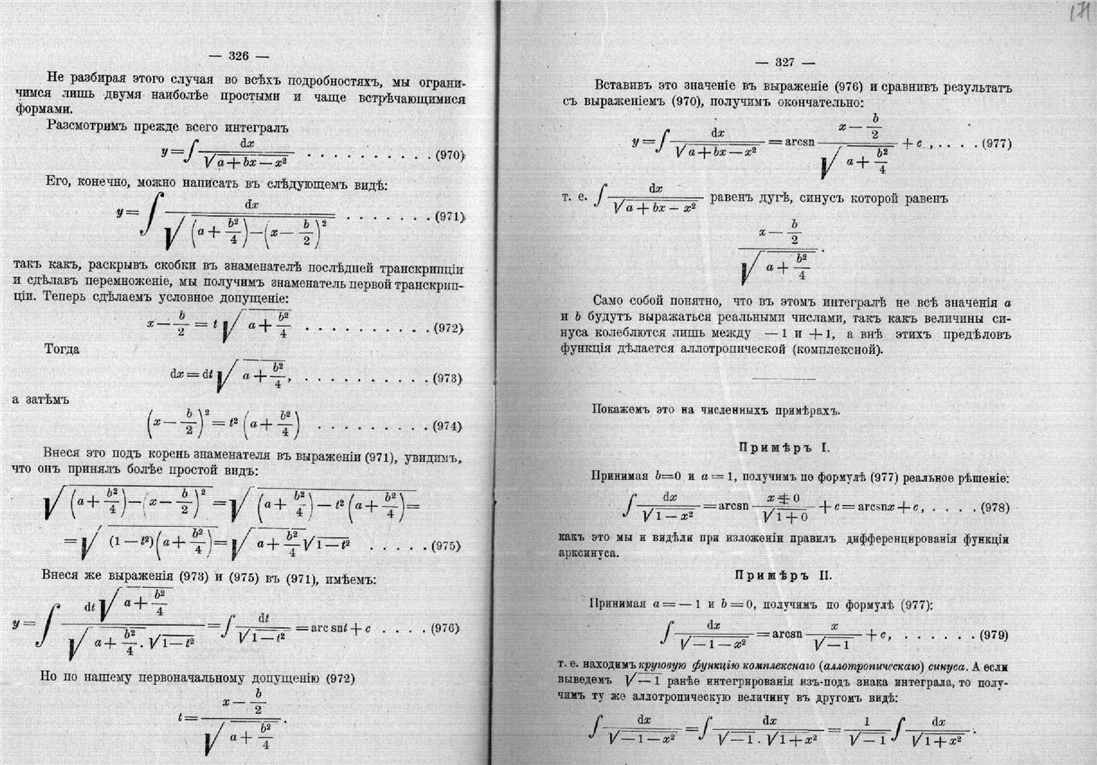 — 326 —
Не разбирая этого случая во всѣхъ подробностяхъ, мы ограни-
чимся лишь двумя наиболѣе простыми и чаще встрѣчающимися
формами.
Разсмотримъ прежде всего интегралъ
y = ∫ dx / √(a + bx − x²) . . . . . . . . . . (970)
Его, конечно, можно написать въ слѣдующемъ видѣ:
y = ∫ dx / √((a + b²/4) − (x − b/2)²) . . . . . . . (971)
такъ какъ, раскрывъ скобки въ знаменателѣ послѣдней транскрипціи
и сдѣлавъ перемноженіе, мы получимъ знаменатель первой транскрип-
ціи. Теперь сдѣлаемъ условное допущеніе:
x − b/2 = t √(a + b²/4) . . . . . . . . . . (972)
Тогда
dx = dt √(a + b²/4), . . . . . . . . . . (973)
а затѣмъ
(x − b/2)² = t² (a + b²/4) . . . . . . . . . . (974)
Внеся это подъ корень знаменателя въ выраженіи (971), увидимъ,
что онъ принялъ болѣе простой видъ:
√((a + b²/4) − (x − b/2)²) = √((a + b²/4) − t² (a + b²/4)) =
= √((1 − t²)(a + b²/4)) = √(a + b²/4) √(1 − t²) . . . . . (975)
Внеся же выраженія (973) и (975) въ (971), имѣемъ:
y = ∫ dt √(a + b²/4) / (√(a + b²/4) . √(1 − t²)) = ∫ dt / √(1 − t²) = arc snt + c . . . . (976)
Но по нашему первоначальному допущенію (972)
t = (x − b/2) / √(a + b²/4) .
171
— 327 —
Вставивъ это значеніе въ выраженіе (976) и сравнивъ результатъ
съ выраженіемъ (970), получимъ окончательно:
y = ∫ dx / √(a + bx − x²) = arcsn (x − b/2) / √(a + b²/4) + c , . . . . (977)
т. е. ∫ dx / √(a + bx − x²) равенъ дугѣ, синусъ которой равенъ
(x − b/2) / √(a + b²/4) .
Само собой понятно, что въ этомъ интегралѣ не всѣ значенія a
и b будутъ выражаться реальными числами, такъ какъ величины си-
нуса колеблются лишь между — 1 и + 1, а внѣ этихъ предѣловъ
функція дѣлается аллотропической (комплексной).
Покажемъ это на численныхъ примѣрахъ.
Примѣръ I.
Принимая b=0 и a = 1, получимъ по формулѣ (977) реальное рѣшеніе:
∫ dx / √(1 − x²) = arcsn (x ± 0) / √(1 + 0) + c = arcsnx + c, . . . . . (978)
какъ это мы и видѣли при изложеніи правилъ дифференцированія функціи
арксинуса.
Примѣръ II.
Принимая a = — 1 и b = 0, получимъ по формулѣ (977):
∫ dx / √(— 1 — x²) = arcsn x / √(— 1) + c, . . . . . . . (979)
т. е. находимъ круговую функцію комплекснаго (аллотропическаго) синуса. А если
выведемъ √— 1 ранѣе интегрированія изъ-подъ знака интеграла, то полу-
чимъ ту же аллотропическую величину въ другомъ видѣ:
∫ dx / √(— 1 — x²) = ∫ dx / (√(— 1) . √(1 + x²)) = 1 / √(— 1) ∫ dx / √(1 + x²) .